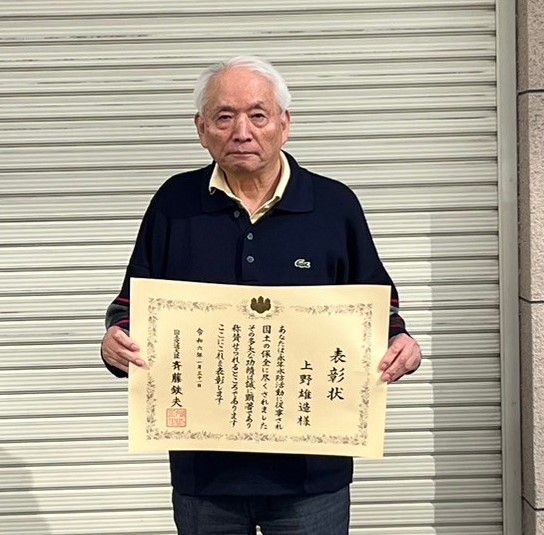 表彰状
上野雄造様
あなたは永年水防活動に従事され
国土の保全に尽くされました
その多大な功績は誠に顕著であり
称賛せられるところであります
ここにこれを表彰します
令和六年一月三十一日
国土交通大臣 斉藤鉄夫